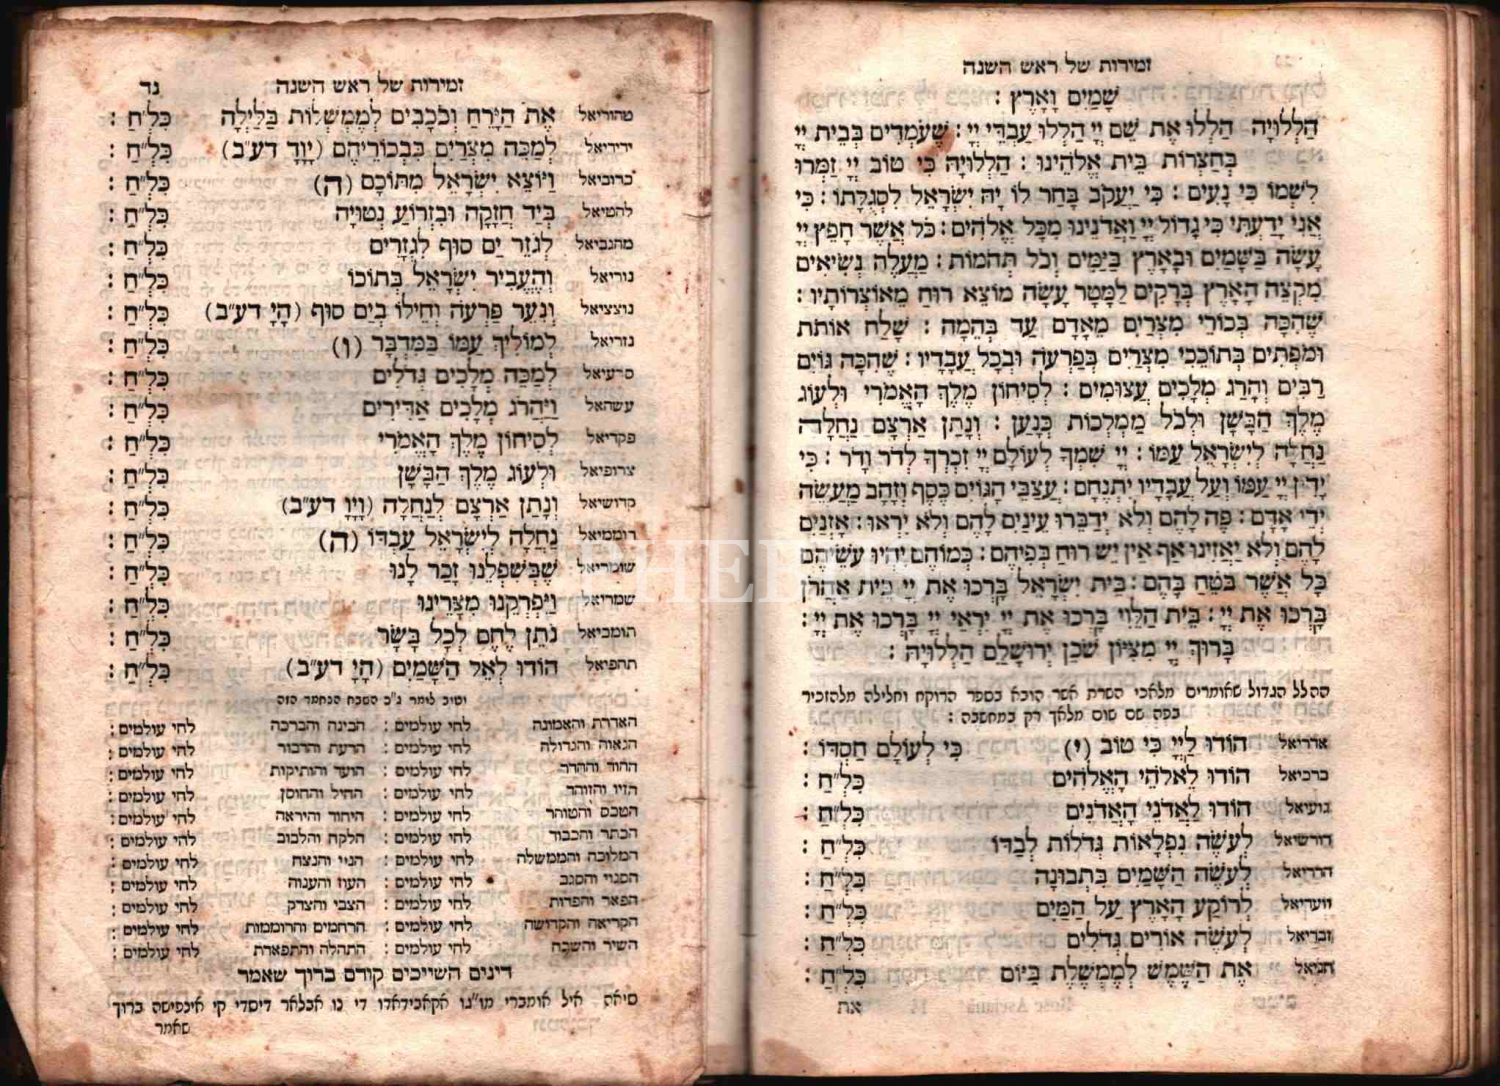 זמירות של ראש השנה
שָׁמַיִם וָאָרֶץ :
הַלְלוּיָהּ הַלְלוּ אֶת שֵׁם יְיָ הַלְלוּ עַבְדֵי יְיָ : שֶׁעֹמְדִים בְּבֵית יְיָ
בְּחַצְרוֹת בֵּית אֱלֹהֵינוּ : הַלְלוּיָהּ כִּי טוֹב יְיָ זַמְּרוּ
לִשְׁמוֹ כִּי נָעִים : כִּי יַעֲקֹב בָּחַר לוֹ יָהּ יִשְׂרָאֵל לִסְגֻלָּתוֹ : כִּי
אֲנִי יָדַעְתִּי כִּי גָדוֹל יְיָ וַאֲדֹנֵינוּ מִכָּל אֱלֹהִים : כֹּל אֲשֶׁר חָפֵץ יְיָ
עָשָׂה בַּשָּׁמַיִם וּבָאָרֶץ בַּיַּמִּים וְכֹל תְּהֹמוֹת : מַעֲלֶה נְשִׂיאִים
מִקְצֵה הָאָרֶץ בְּרָקִים לַמָּטָר עָשָׂה מוֹצֵא רוּחַ מֵאוֹצְרוֹתָיו :
שֶׁהִכָּה בְּכוֹרֵי מִצְרַיִם מֵאָדָם עַד בְּהֵמָה : שָׁלַח אוֹתֹת
וּמֹפְתִים בְּתוֹכֵכִי מִצְרַיִם בְּפַרְעֹה וּבְכָל עֲבָדָיו : שֶׁהִכָּה גּוֹיִם
רַבִּים וְהָרַג מְלָכִים עֲצוּמִים : לְסִיחוֹן מֶלֶךְ הָאֱמֹרִי וּלְעוֹג
מֶלֶךְ הַבָּשָׁן וּלְכֹל מַמְלְכוֹת כְּנַעַן : וְנָתַן אַרְצָם נַחֲלָה
נַחֲלָה לְיִשְׂרָאֵל עַמּוֹ : יְיָ שִׁמְךָ לְעוֹלָם יְיָ זִכְרְךָ לְדֹר וָדֹר : כִּי
יָדִין יְיָ עַמּוֹ וְעַל עֲבָדָיו יִתְנֶחָם : עֲצַבֵּי הַגּוֹיִם כֶּסֶף וְזָהָב מַעֲשֵׂה
יְדֵי אָדָם : פֶּה לָהֶם וְלֹא יְדַבֵּרוּ עֵינַיִם לָהֶם וְלֹא יִרְאוּ : אָזְנַיִם
לָהֶם וְלֹא יַאֲזִינוּ אַף אֵין יֶשׁ רוּחַ בְּפִיהֶם : כְּמוֹהֶם יִהְיוּ עֹשֵׂיהֶם
כֹּל אֲשֶׁר בֹּטֵחַ בָּהֶם : בֵּית יִשְׂרָאֵל בָּרְכוּ אֶת יְיָ בֵּית אַהֲרֹן
בָּרְכוּ אֶת יְיָ : בֵּית הַלֵּוִי בָּרְכוּ אֶת יְיָ יִרְאֵי יְיָ בָּרְכוּ אֶת יְיָ :
בָּרוּךְ יְיָ מִצִּיּוֹן שֹׁכֵן יְרוּשָׁלַםִ הַלְלוּיָהּ :
ההלל הגדול שאומרים מלאכי השרת אשר הובא בספר הרוקח וחלילה מלהזכיר
בפה שם שום מלאך רק במחשבה :
אדריאל הוֹדוּ לַיְיָ כִּי טוֹב (י) כִּי לְעוֹלָם חַסְדּוֹ :
ברכיאל הוֹדוּ לֵאלֹהֵי הָאֱלֹהִים כִּלְ"חַ :
גועיאל הוֹדוּ לַאֲדֹנֵי הָאֲדֹנִים כִּלְ"חַ :
דורשיאל לְעֹשֵׂה נִפְלָאוֹת גְּדֹלוֹת לְבַדּוֹ כִּלְ"חַ :
הדריאל לְעֹשֵׂה הַשָּׁמַיִם בִּתְבוּנָה כִּלְ"חַ :
וועדיאל לְרוֹקַע הָאָרֶץ עַל הַמָּיִם כִּלְ"חַ :
זבדיאל לְעֹשֵׂה אוֹרִים גְּדֹלִים כִּלְ"חַ :
חניאל אֶת הַשֶּׁמֶשׁ לְמֶמְשֶׁלֶת בַּיּוֹם כִּלְ"חַ :
את
זמירות של ראש השנה נד
טהוריאל אֶת הַיָּרֵחַ וְכֹכָבִים לְמֶמְשְׁלוֹת בַּלַּיְלָה כִּלְ"חַ :
ידידיאל לְמַכֵּה מִצְרַיִם בִּבְכוֹרֵיהֶם (יוד דע"ב) כִּלְ"חַ :
כרוביאל וַיּוֹצֵא יִשְׂרָאֵל מִתּוֹכָם (ה) כִּלְ"חַ :
להטיאל בְּיָד חֲזָקָה וּבִזְרוֹעַ נְטוּיָה כִּלְ"חַ :
מהגביאל לְגֹזֵר יַם סוּף לִגְזָרִים כִּלְ"חַ :
נוריאל וְהֶעֱבִיר יִשְׂרָאֵל בְּתוֹכוֹ כִּלְ"חַ :
נוצציאל וְנִעֵר פַּרְעֹה וְחֵילוֹ בְיַם סוּף (הי דע"ב) כִּלְ"חַ :
נזריאל לְמוֹלִיךְ עַמּוֹ בַּמִּדְבָּר (ו) כִּלְ"חַ :
סרעיאל לְמַכֵּה מְלָכִים גְּדֹלִים כִּלְ"חַ :
עשהאל וַיַּהֲרֹג מְלָכִים אַדִּירִים כִּלְ"חַ :
פקדיאל לְסִיחוֹן מֶלֶךְ הָאֱמֹרִי כִּלְ"חַ :
צרופיאל וּלְעוֹג מֶלֶךְ הַבָּשָׁן כִּלְ"חַ :
קדושיאל וְנָתַן אַרְצָם לְנַחֲלָה (ויו דע"ב) כִּלְ"חַ :
רוממיאל נַחֲלָה לְיִשְׂרָאֵל עַבְדּוֹ (ה) כִּלְ"חַ :
שומריאל שֶׁבְּשִׁפְלֵנוּ זָכַר לָנוּ כִּלְ"חַ :
שמריאל וַיִּפְרְקֵנוּ מִצָּרֵינוּ כִּלְ"חַ :
תומכיאל נֹתֵן לֶחֶם לְכָל בָּשָׂר כִּלְ"חַ :
תהפיאל הוֹדוּ לְאֵל הַשָּׁמַיִם (הי דע"ב) כִּלְ"חַ :
וטוב לומר ג"כ השבח הנחמד הזה
האדרת והאמונה לחי עולמים : הבינה והברכה לחי עולמים :
הגאוה והגדולה לחי עולמים : הדעת והדבור לחי עולמים :
ההוד וההדר לחי עולמים : הועד והותיקות לחי עולמים :
הזיו והזוהר לחי עולמים : החיל והחוסן לחי עולמים :
הטכס והטוהר לחי עולמים : היחוד והיראה לחי עולמים :
הכתר והכבוד לחי עולמים : הלקח והלבוב לחי עולמים :
המלוכה והממשלה לחי עולמים : הנוי והנצח לחי עולמים :
הסגוי והסגב לחי עולמים : העוז והענוה לחי עולמים :
הפאר והפדות לחי עולמים : הצבי והצדק לחי עולמים :
הקריאה והקדושה לחי עולמים : הרחמים והרוממות לחי עולמים :
השיר והשבח לחי עולמים : התהלה והתפארת לחי עולמים :
דינים השייכים קודם ברוך שאמר
סיאה איל אומברי מו"נו אקאבידאדו די נו אבלאר דיסדי קי אינפיסה ברוך
שאמר